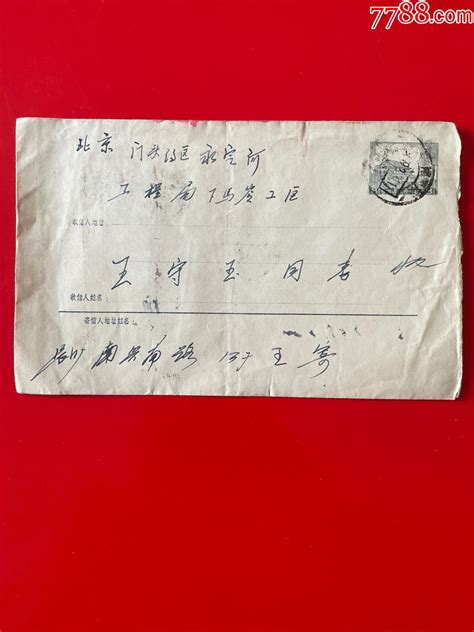 7788.com
北京 门头沟区 永定河
工程局 下马岭工区
收信人地址:
王守玉同志收
收信人姓名:
寄信人地址姓名:
南路 王寄